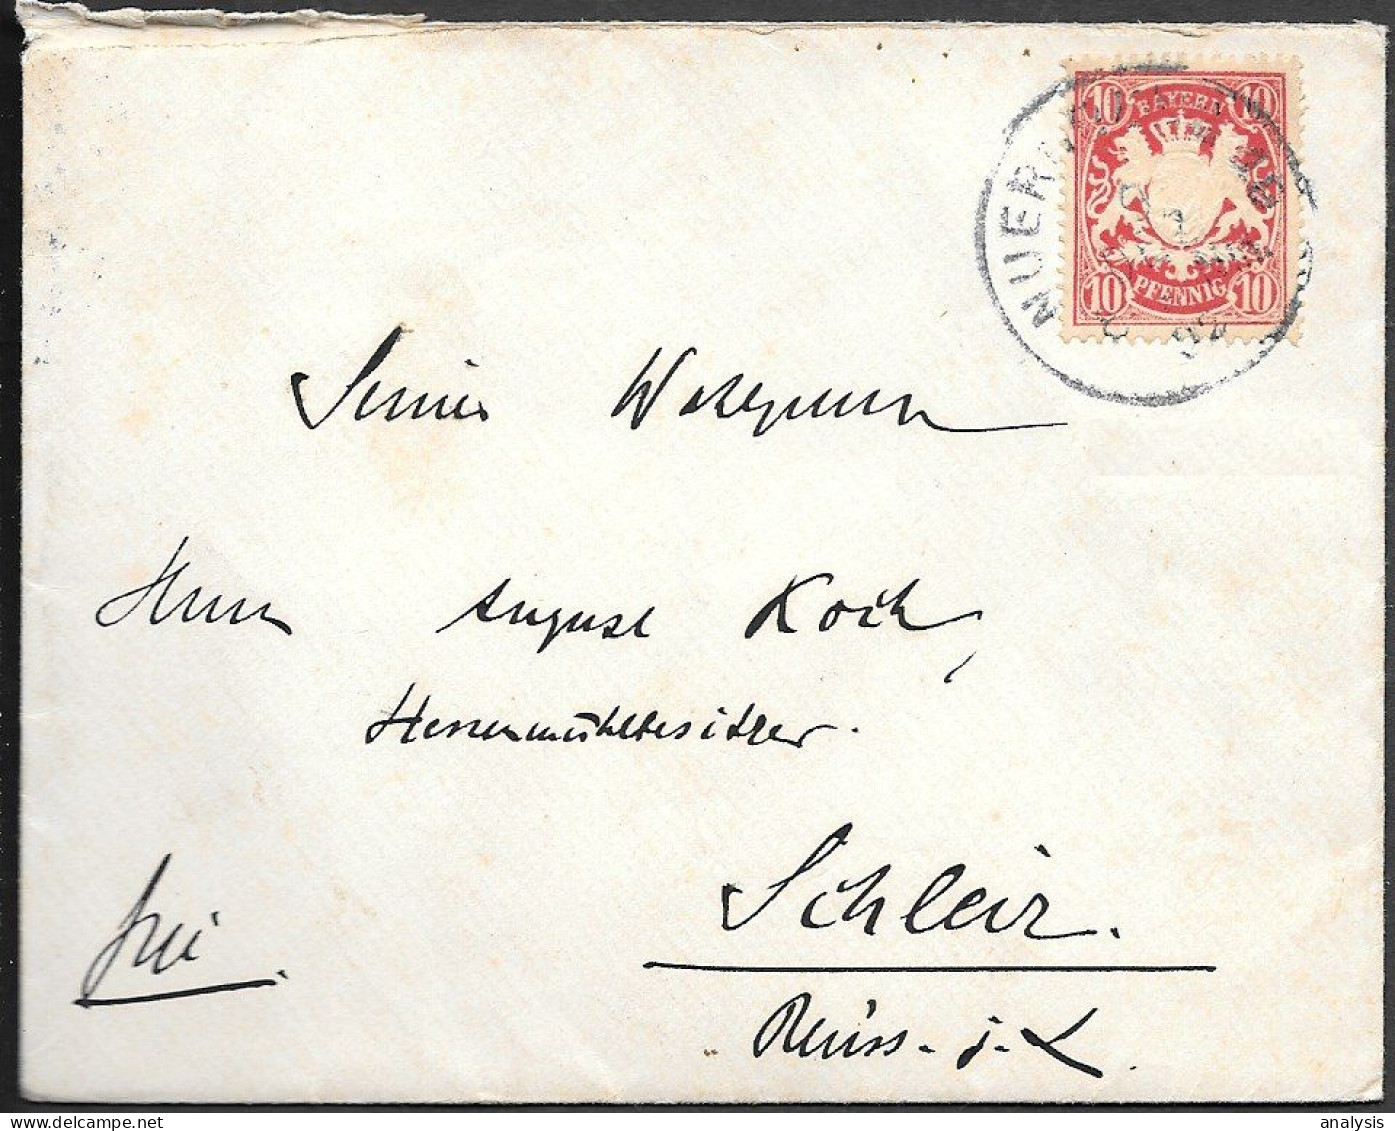 10 BAYERN 10
10 PFENNIG 10
NUER
92
Seiner Wohlgeboren
Herrn August Koch,
Herrenmühlbesitzer.
Schleiz.
frei.
Reuss. j. L.
delcampe.net
analysis